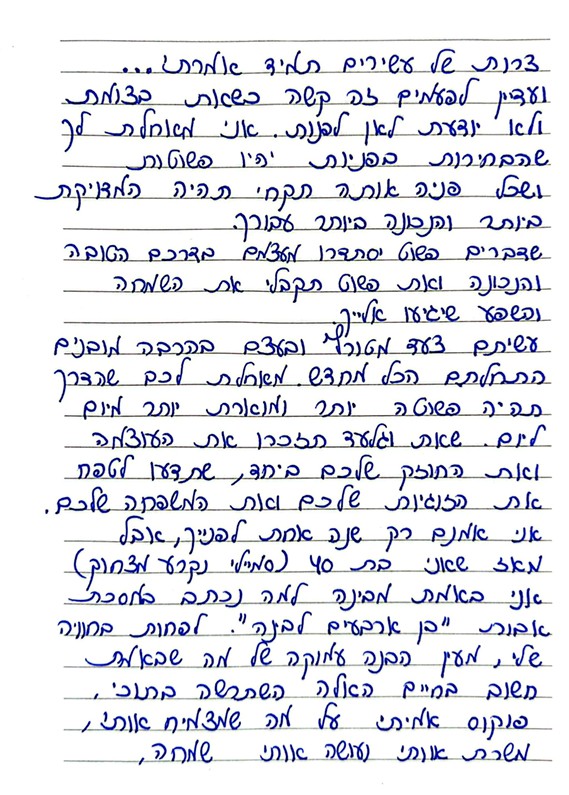 צרות של עשירים תמיד אמרתי...
ועדיין לפעמים זה קשה כשאת בצומת
ולא יודעת לאן לפנות. אני מאחלת לך
שהבחירות בפניות יהיו פשוטות
ושכל פניה אותה תקחי תהיה המדויקת
ביותר והנכונה ביותר עבורך.
שדברים פשוט יסתדרו מעצמם בדרכם הטובה
והנכונה ואת פשוט תקבלי את השמחה
והשפע שיגיעו אלייך.
עשיתם צעד מטורלל ובעצם בהרבה מובנים
התחלתם הכל מחדש. מאחלת לכם שהדרך
תהיה פשוטה יותר ומוארת יותר מיום
ליום. שאת וגלעד תזכרו את העוצמה
ואת החוזק שלכם ביחד, שתדעו לטפח
את הזוגיות שלכם ואת המשפחה שלכם.
אני אמנם רק שנה אחת לפנייך, אבל
מאז שאני בת 40 (סמיילי נקרע מצחוק)
אני באמת מבינה למה נכתב במסכת
אבות "בן ארבעים לבינה". לפחות בחוויה
שלי, מעין הבנה עמוקה של מה שבאמת
חשוב בחיים האלה השתרשה בתוכי,
פוקוס אמיתי על מה שמצמיח אותי,
משרת אותי ועושה אותי שמחה,